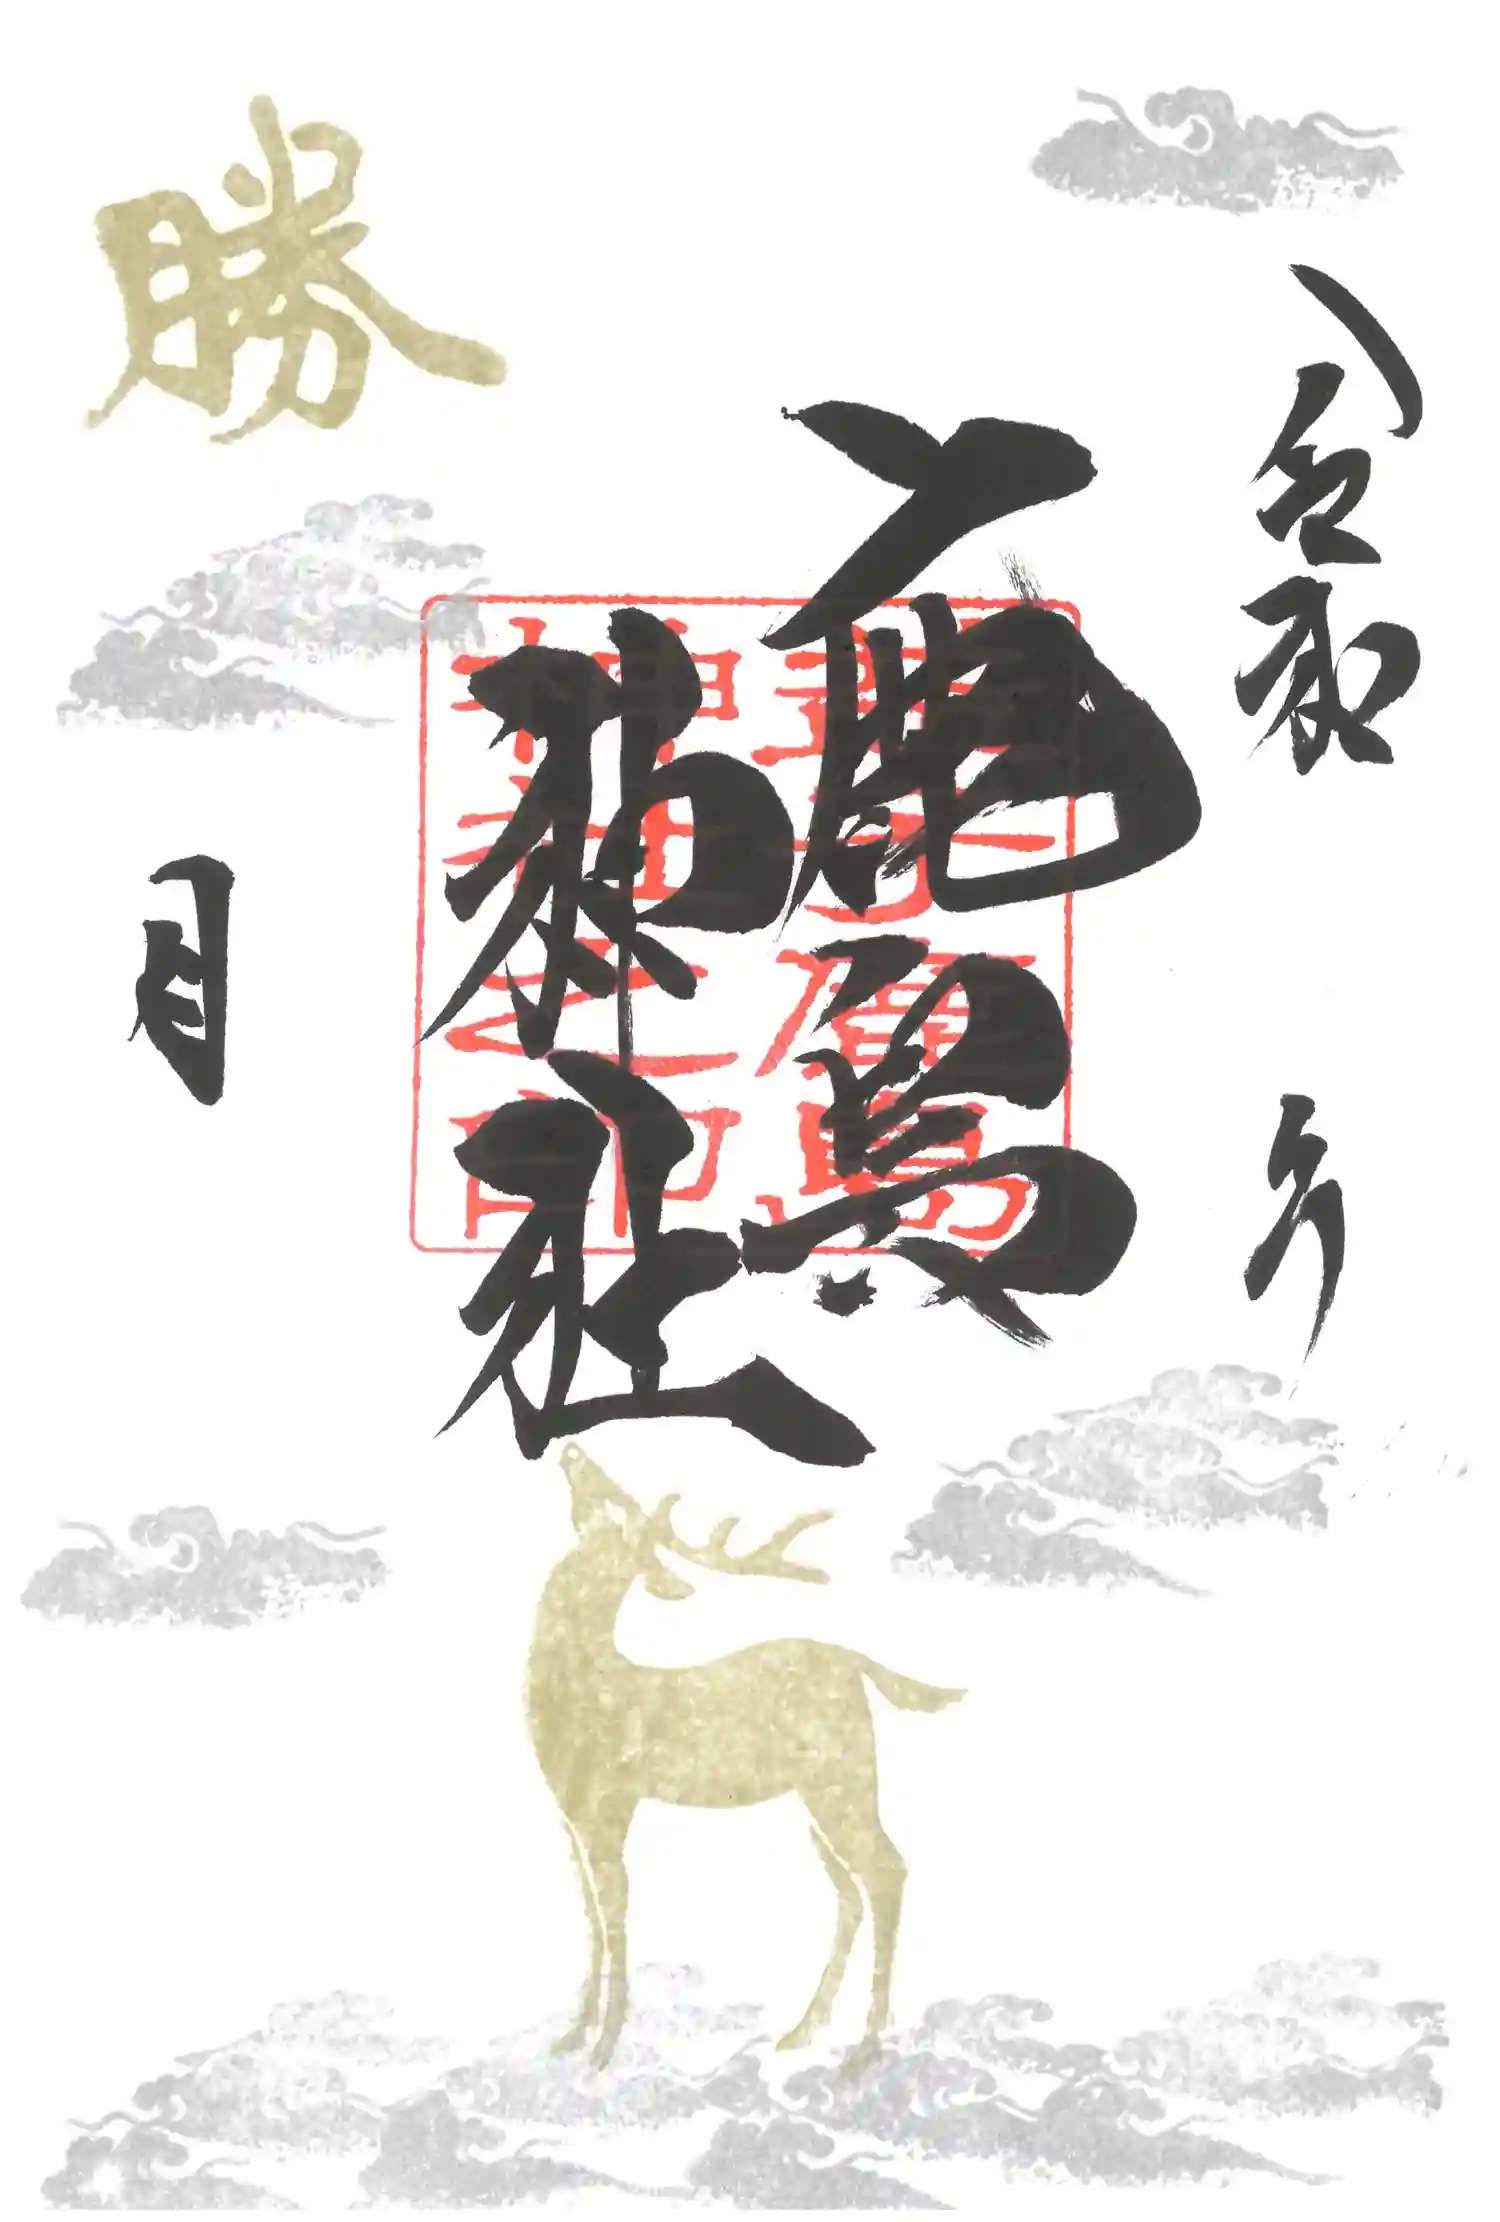 令和 年
鹿島
神社
月
勝
神社之印